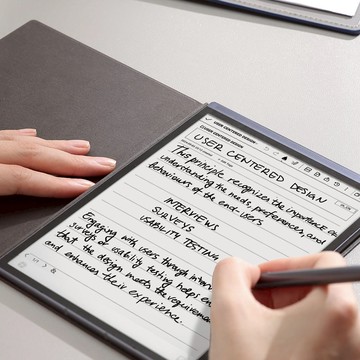 USER CENTERED DESIGN
USER CENTERED DESIGN
USER CENTERED DESIGN
This principle recognizes the importance of
understanding the needs, preferences, and
behaviours of the end-users
INTERVIEWS
SURVEYS
USABILITY TESTING
Engaging with users through
surveys & usability testing helps
that the design meets the
and enhances their experience.